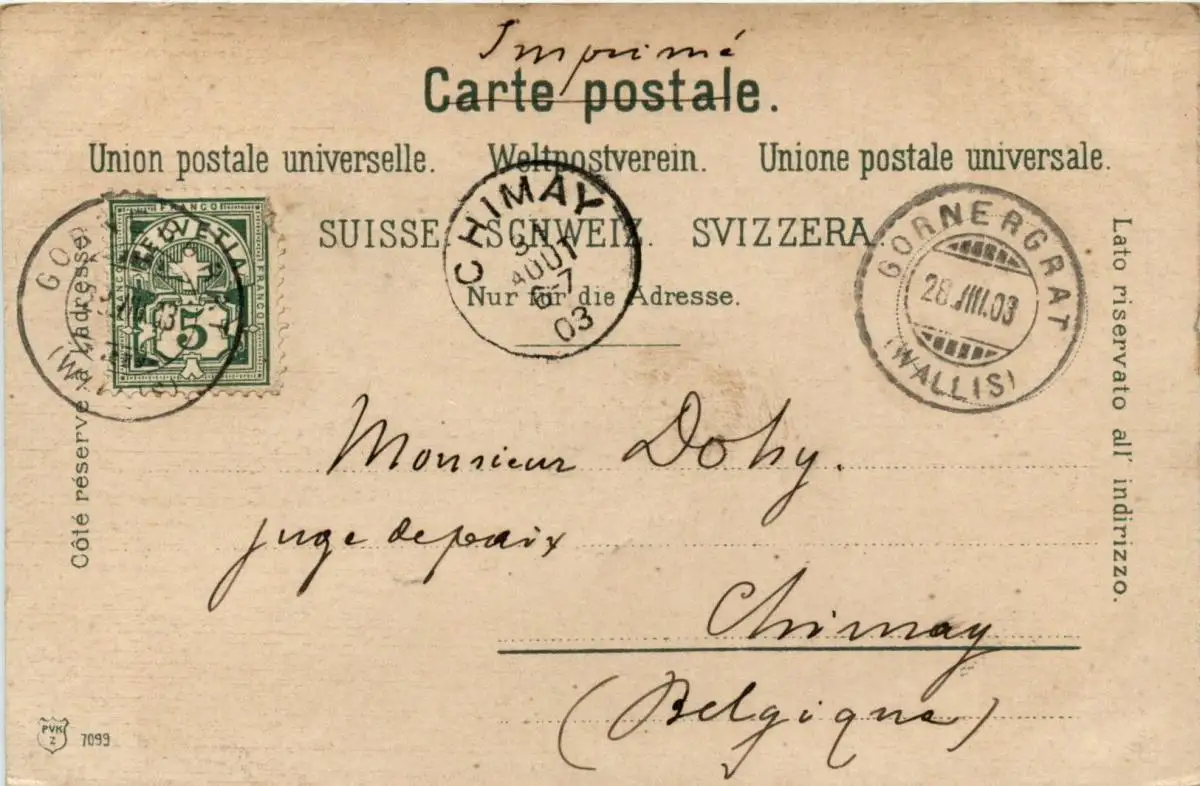 Imprimé
Carte postale.
Union postale universelle. Weltpostverein. Unione postale universale.
SUISSE. SCHWEIZ. SVIZZERA.
Nur für die Adresse.
Côté réservé à l'adresse
Lato riservato all' indirizzo.
FRANCO
HELVETIA
FRANCO
FRANCO
5
CHIMAY
AOUT
6-7
03
GORNERGRAT
28.VIII.03
(WALLIS)
Monsieur Dohy.
juge de paix
Chimay
(Belgique)
PVK
Z
7099